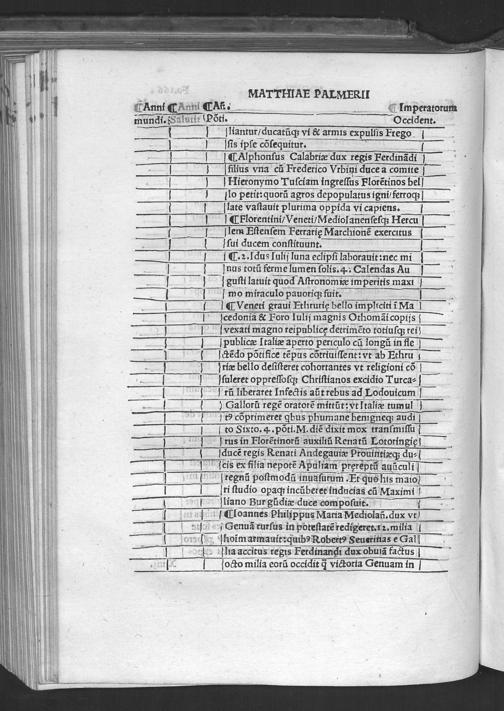 MATTHIAE PALMERII
¶Anni ¶Anni ¶Añ. ¶Imperatorum
mundi. Salutis Põti. Occident.
liantur/ducatũq; vi & armis expulsis Frego
sis ipse cõsequitur.
¶Alphonsus Calabriæ dux regis Ferdinãdi
filius vna cũ Frederico Vrbini duce a comite
Hieronymo Tusciam ingressus Florẽtinos bel
lo petit: quorũ agros depopulatus igni/ferroq;
late vastauit plurima oppida vi capiens.
¶Florentini/Veneti/Mediolanensesq; Hercu
lem Estensem Ferrarię Marchionẽ exercitus
sui ducem constituunt.
¶.2. Idus Iulij luna eclipsi laborauit: nec mi
nus totũ ferme lumen solis .4. Calendas Au
gusti latuit quod Astronomiæ imperitis maxi
mo miraculo pauoriq; fuit.
¶Veneti graui Ethrurię bello impliciti ĩ Ma
cedonia & Foro Iulij magnis Othomãi copijs
vexati magno reipublicę detrimẽto totiusq; rei
publicæ Italiæ aperto periculo cũ longũ in fle
ctẽdo põtifice tẽpus cõtriuissent: vt ab Ethru
riæ bello desisteret cohortantes vt religioni cõ
suleret oppressosq; Christianos excidio Turca-
rũ liberaret Infectis aũt rebus ad Lodouicum
Gallorũ regẽ oratorẽ mittũt: vt Italiæ tumul
tꝰ cõprimeret qbus phumane benigneq; audi
to Sixto .4. põti. M. diẽ dixit mox transmissu
rus in Florẽtinorũ auxiliũ Renatũ Lotoringię
ducẽ regis Renati Andegauiæ Prouintiæq; du-
cis ex filia nepotẽ Apuliam pręreptũ auũculi
regnũ postmodũ inuasurum. Et quo his maio
ri studio opaq; incũberet inducias cũ Maximi
liano Burgũdiæ duce composuit.
¶Ioannes Philippus Maria Mediolañ. dux vt
Genuã rursus in potestatẽ redigeret .12. milia
hoim armauit: quibꝰ Robertꝰ Seuerinas e Gal
lia accitus regis Ferdinandi dux obuiã factus
octo milia eorũ occidit q̃ victoria Genuam in